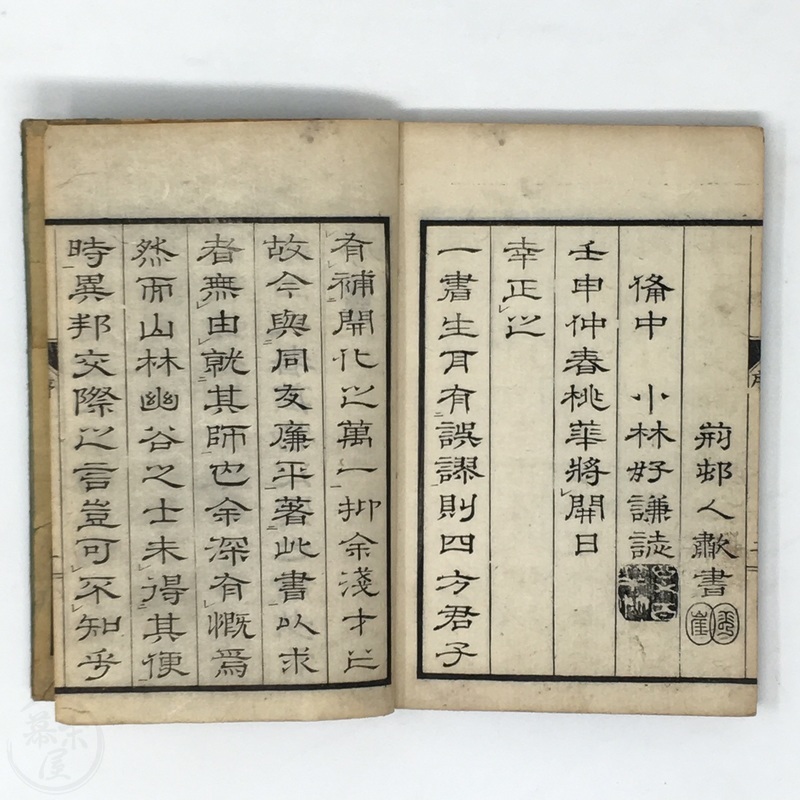 時異邦交際之言豈可不知乎
然而山林幽谷之士未得其便
者無由就其師也余深有慨爲
故今與同友廉平著此書以求
有補開化之萬一抑余淺才之
一書生耳有誤謬則四方君子
幸正之
壬申仲春桃華將開日
備中 小林好謙誌
荊邨人書